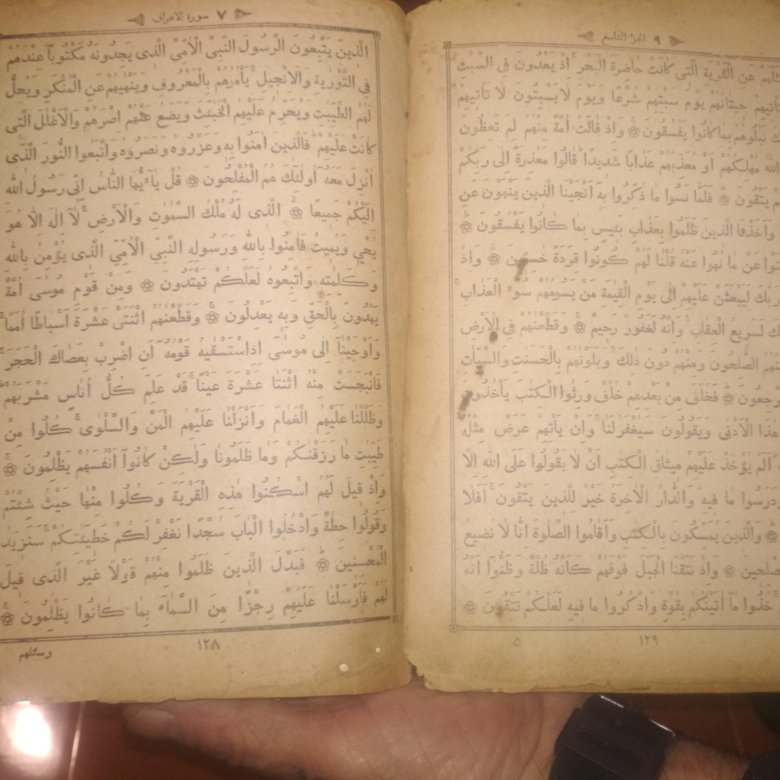 ٧ سورة الاعراف
الَّذينَ يَتَّبِعُونَ الرَّسُولَ النَّبِيَّ الْاُمِّيَّ الَّذى يَجِدُونَهُ مَكْتُوبًا عِنْدَهُمْ
فِى التَّوْرٰيةِ وَالْاِنْجيلِ يَأْمُرُهُمْ بِالْمَعْرُوفِ وَيَنْهٰيهُمْ عَنِ الْمُنْكَرِ وَيُحِلُّ
لَهُمُ الطَّيِّبَاتِ وَيُحَرِّمُ عَلَيْهِمُ الْخَبَٓائِثَ وَيَضَعُ عَنْهُمْ اِصْرَهُمْ وَالْاَغْلَالَ الَّتى
كَانَتْ عَلَيْهِمْ فَالَّذينَ اٰمَنُوا بِه وَعَزَّرُوهُ وَنَصَرُوهُ وَاتَّبَعُوا النُّورَ الَّذى
اُنْزِلَ مَعَهُ اُولٰٓئِكَ هُمُ الْمُفْلِحُونَ ۞ قُلْ يَٓا اَيُّهَا النَّاسُ اِنّى رَسُولُ اللهِ
اِلَيْكُمْ جَميعًا ۞ الَّذى لَهُ مُلْكُ السَّمٰوَاتِ وَالْاَرْضِ لَٓا اِلٰهَ اِلَّا هُوَ
يُحْيى وَيُميتُ فَاٰمِنُوا بِاللهِ وَرَسُولِهِ النَّبِيِّ الْاُمِّيِّ الَّذى يُؤْمِنُ بِاللهِ
وَكَلِمَاتِه وَاتَّبِعُوهُ لَعَلَّكُمْ تَهْتَدُونَ ۞ وَمِنْ قَوْمِ مُوسٰٓى اُمَّةٌ
يَهْدُونَ بِالْحَقِّ وَبِه يَعْدِلُونَ ۞ وَقَطَّعْنَاهُمُ اثْنَتَىْ عَشْرَةَ اَسْبَاطًا اُمَمًا
وَاَوْحَيْنَٓا اِلٰى مُوسٰٓى اِذِ اسْتَسْقٰيهُ قَوْمُهُ اَنِ اضْرِبْ بِعَصَاكَ الْحَجَرَ
فَانْبَجَسَتْ مِنْهُ اثْنَتَا عَشْرَةَ عَيْنًا قَدْ عَلِمَ كُلُّ اُنَاسٍ مَشْرَبَهُمْ
وَظَلَّلْنَا عَلَيْهِمُ الْغَمَامَ وَاَنْزَلْنَا عَلَيْهِمُ الْمَنَّ وَالسَّلْوٰى كُلُوا مِنْ
طَيِّبَاتِ مَا رَزَقْنَاكُمْ وَمَا ظَلَمُونَا وَلٰكِنْ كَانُٓوا اَنْفُسَهُمْ يَظْلِمُونَ ۞
وَاِذْ قيلَ لَهُمُ اسْكُنُوا هٰذِهِ الْقَرْيَةَ وَكُلُوا مِنْهَا حَيْثُ شِئْتُمْ
وَقُولُوا حِطَّةٌ وَادْخُلُوا الْبَابَ سُجَّدًا نَغْفِرْ لَكُمْ خَطٓيـَٔاتِكُمْ سَنَزيدُ
الْمُحْسِنينَ ۞ فَبَدَّلَ الَّذينَ ظَلَمُوا مِنْهُمْ قَوْلًا غَيْرَ الَّذى قيلَ
لَهُمْ فَاَرْسَلْنَا عَلَيْهِمْ رِجْزًا مِنَ السَّمَٓاءِ بِمَا كَانُوا يَظْلِمُونَ ۞
١٢٨
وسئلهم
٩ الجزء التاسع
عَنِ الْقَرْيَةِ الَّتى كَانَتْ حَاضِرَةَ الْبَحْرِ اِذْ يَعْدُونَ فِى السَّبْتِ
حيتَانُهُمْ يَوْمَ سَبْتِهِمْ شُرَّعًا وَيَوْمَ لَا يَسْبِتُونَ لَا تَأْتيهِمْ
نَبْلُوهُمْ بِمَا كَانُوا يَفْسُقُونَ ۞ وَاِذْ قَالَتْ اُمَّةٌ مِنْهُمْ لِمَ تَعِظُونَ
اللهُ مُهْلِكُهُمْ اَوْ مُعَذِّبُهُمْ عَذَابًا شَديدًا قَالُوا مَعْذِرَةً اِلٰى رَبِّكُمْ
يَتَّقُونَ ۞ فَلَمَّا نَسُوا مَا ذُكِّرُوا بِه اَنْجَيْنَا الَّذينَ يَنْهَوْنَ عَنِ
وَاَخَذْنَا الَّذينَ ظَلَمُوا بِعَذَابٍ بَئيسٍ بِمَا كَانُوا يَفْسُقُونَ ۞
عَنْ مَا نُهُوا عَنْهُ قُلْنَا لَهُمْ كُونُوا قِرَدَةً خَاسِئينَ ۞ وَاِذْ
لَيَبْعَثَنَّ عَلَيْهِمْ اِلٰى يَوْمِ الْقِيٰمَةِ مَنْ يَسُومُهُمْ سُٓوءَ الْعَذَابِ
لَسَريعُ الْعِقَابِ وَاِنَّهُ لَغَفُورٌ رَحيمٌ ۞ وَقَطَّعْنَاهُمْ فِى الْاَرْضِ
الصَّالِحُونَ وَمِنْهُمْ دُونَ ذٰلِكَ وَبَلَوْنَاهُمْ بِالْحَسَنَاتِ وَالسَّيِّـَٔاتِ
يَرْجِعُونَ ۞ فَخَلَفَ مِنْ بَعْدِهِمْ خَلْفٌ وَرِثُوا الْكِتَابَ يَأْخُذُونَ
هٰذَا الْاَدْنٰى وَيَقُولُونَ سَيُغْفَرُ لَنَا وَاِنْ يَأْتِهِمْ عَرَضٌ مِثْلُهُ
اَلَمْ يُؤْخَذْ عَلَيْهِمْ ميثَاقُ الْكِتَابِ اَنْ لَا يَقُولُوا عَلَى اللهِ اِلَّا
وَدَرَسُوا مَا فيهِ وَالدَّارُ الْاٰخِرَةُ خَيْرٌ لِلَّذينَ يَتَّقُونَ اَفَلَا
۞ وَالَّذينَ يُمَسِّكُونَ بِالْكِتَابِ وَاَقَامُوا الصَّلٰوةَ اِنَّا لَا نُضيعُ
۞ وَاِذْ نَتَقْنَا الْجَبَلَ فَوْقَهُمْ كَاَنَّهُ ظُلَّةٌ وَظَنُّٓوا اَنَّهُ
خُذُوا مَٓا اٰتَيْنَاكُمْ بِقُوَّةٍ وَاذْكُرُوا مَا فيهِ لَعَلَّكُمْ تَتَّقُونَ ۞
١٢٩